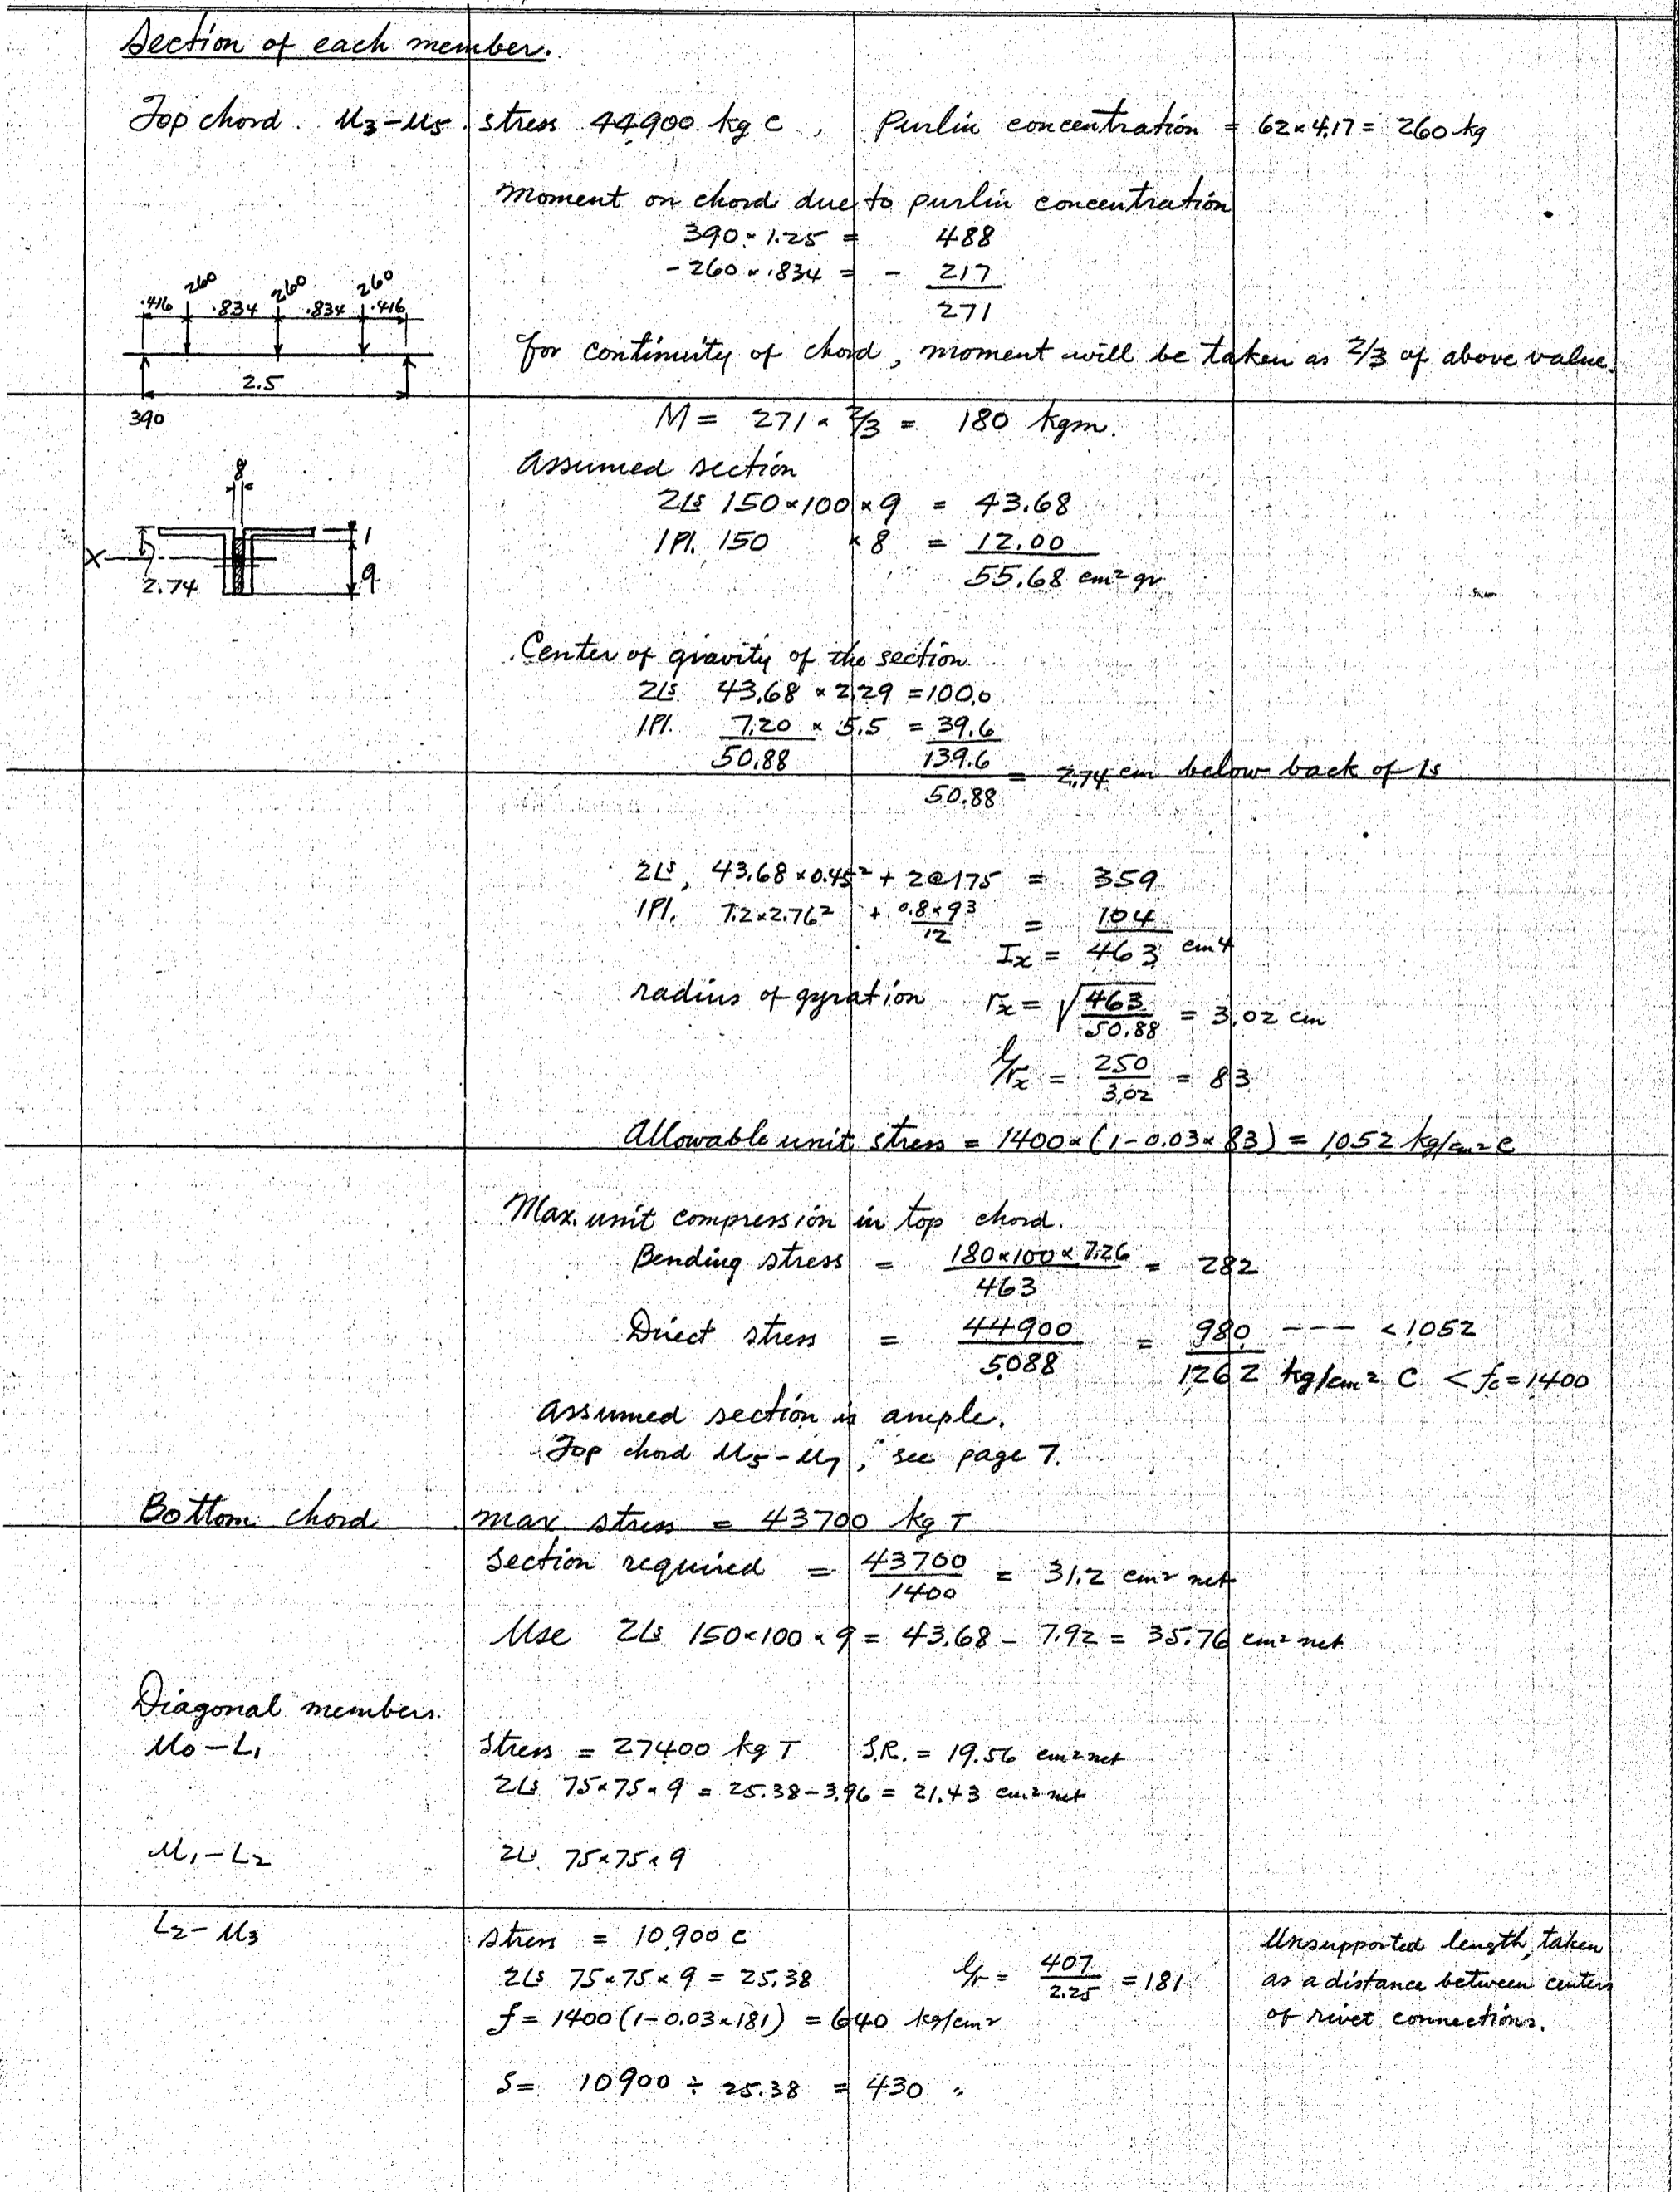 Section of each member.
Top chord. U3-U5. stress 44900 kg C, Purlin concentration = 62×4.17 = 260 kg
Moment on chord due to purlin concentration
390×1.25 = 488
-260×.834 = - 217
271
260 260 260
.416 .834 .834 .416
2.5
390
for continuity of chord, moment will be taken as 2/3 of above value.
M = 271×2/3 = 180 kgm.
Assumed section
2Ls 150×100×9 = 43.68
1Pl. 150 ×8 = 12.00
55.68 cm² gr
8
X
2.74
1
9
Center of gravity of the section
2Ls 43.68 × 2.29 = 100.0
1Pl. 7.20 × 5.5 = 39.6
50.88 139.6
/50.88 = 2.74 cm below back of Ls
2Ls, 43.68×0.45² + 2@175 = 359
1Pl. 7.2×2.76² + 0.8×9³/12 = 104
Ix = 463 cm4
radius of gyration rx = √463/50.88 = 3.02 cm
l/rx = 250/3.02 = 83
Allowable unit stress = 1400×(1-0.03×83) = 1052 kg/cm² C
Max. unit compression in top chord.
Bending stress = 180×100×7.26/463 = 282
Direct stress = 44900/50.88 = 980 --- <1052
1262 kg/cm² C < fc=1400
Assumed section is ample.
Top chord U5-U7, see page 7.
Bottom chord max. stress = 43700 kg T
Section required = 43700/1400 = 31.2 cm² net
Use 2Ls 150×100×9 = 43.68 - 7.92 = 35.76 cm² net
Diagonal members.
U0-L1 Stress = 27400 kg T S.R. = 19.56 cm² net
2Ls 75×75×9 = 25.38-3.96 = 21.43 cm² net
U1-L2 2Ls 75×75×9
L2-U3 stress = 10900 C
2Ls 75×75×9 = 25.38 l/r = 407/2.25 = 181
f = 1400(1-0.03×181) = 640 kg/cm²
S = 10900 ÷ 25.38 = 430 "
Unsupported length, taken
as a distance between centers
of rivet connections.